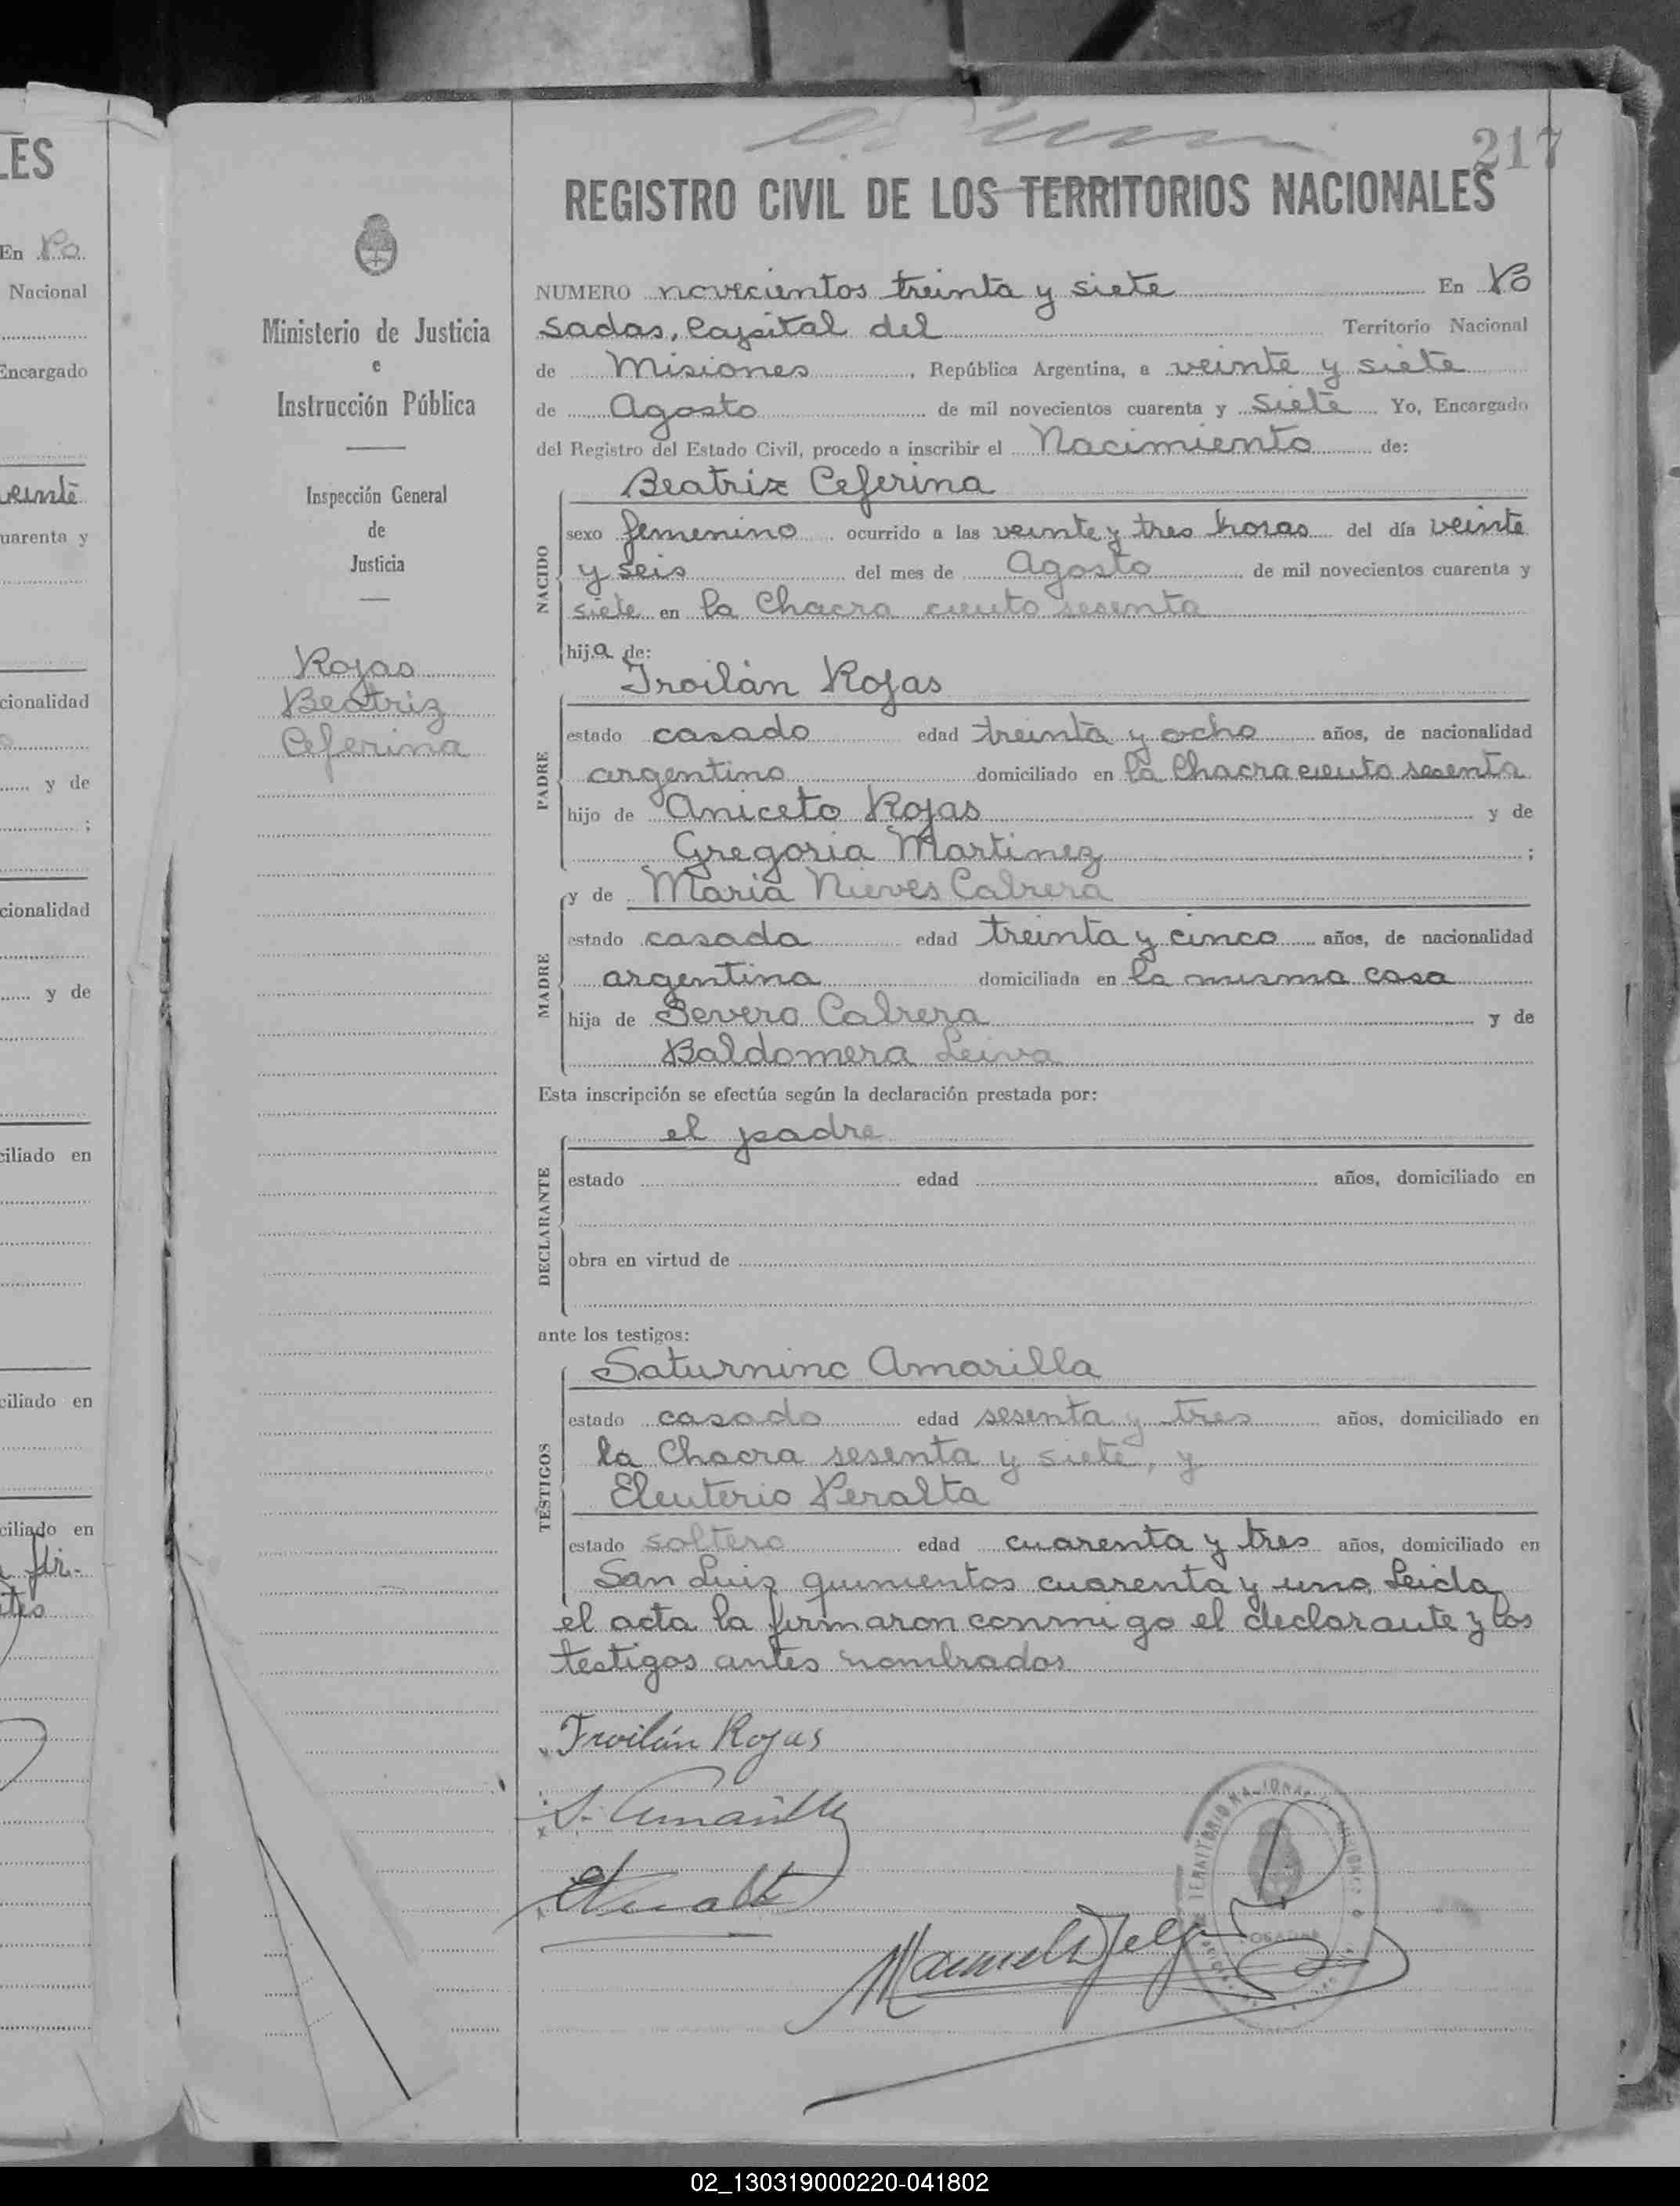 LES
En Po
Nacional
Encargado
veinte
cuarenta y
cionalidad
y de
;
cionalidad
y de
ciliado en
ciliado en
ciliado en
217
Ministerio de Justicia
e
Instrucción Pública
Inspección General
de
Justicia
Rojas
Beatriz
Ceferina
REGISTRO CIVIL DE LOS TERRITORIOS NACIONALES
NUMERO novecientos treinta y siete En Po
sadas, Capital del Territorio Nacional
de Misiones, República Argentina, a veinte y siete
de Agosto de mil novecientos cuarenta y siete Yo, Encargado
del Registro del Estado Civil, procedo a inscribir el Nacimiento de:
Beatriz Ceferina
NACIDO
sexo femenino, ocurrido a las veinte y tres horas del día veinte
y seis del mes de Agosto de mil novecientos cuarenta y
siete en la Chacra ciento sesenta
hija de:
Troilán Rojas
PADRE
estado casado edad treinta y ocho años, de nacionalidad
argentino domiciliado en la Chacra ciento sesenta
hijo de Aniceto Rojas y de
Gregoria Martinez ;
y de Maria Nieves Cabrera
MADRE
estado casada edad treinta y cinco años, de nacionalidad
argentina domiciliada en la misma casa
hija de Severo Cabrera y de
Baldomera Leiva
Esta inscripción se efectúa según la declaración prestada por:
el padre
DECLARANTE
estado edad años, domiciliado en
obra en virtud de
ante los testigos:
Saturnino Amarilla
TESTIGOS
estado casado edad sesenta y tres años, domiciliado en
la Chacra sesenta y siete, y
Eleuterio Peralta
estado soltero edad cuarenta y tres años, domiciliado en
San Luis quinientos cuarenta y uno. Leida
el acta la firmaron conmigo el declarante y los
testigos antes nombrados
Troilán Rojas
S. Amarilla
EPeralta
TERRITORIO NACIONAL
POSADAS
02_130319000220-041802